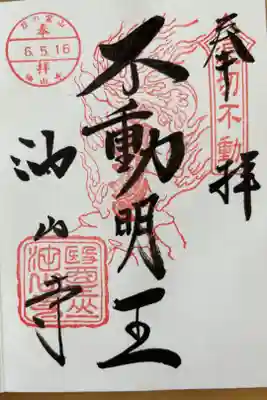 奉拝
不動明王
油山寺
奉
6.5.16
拝
油山寺
醫王山
油山寺